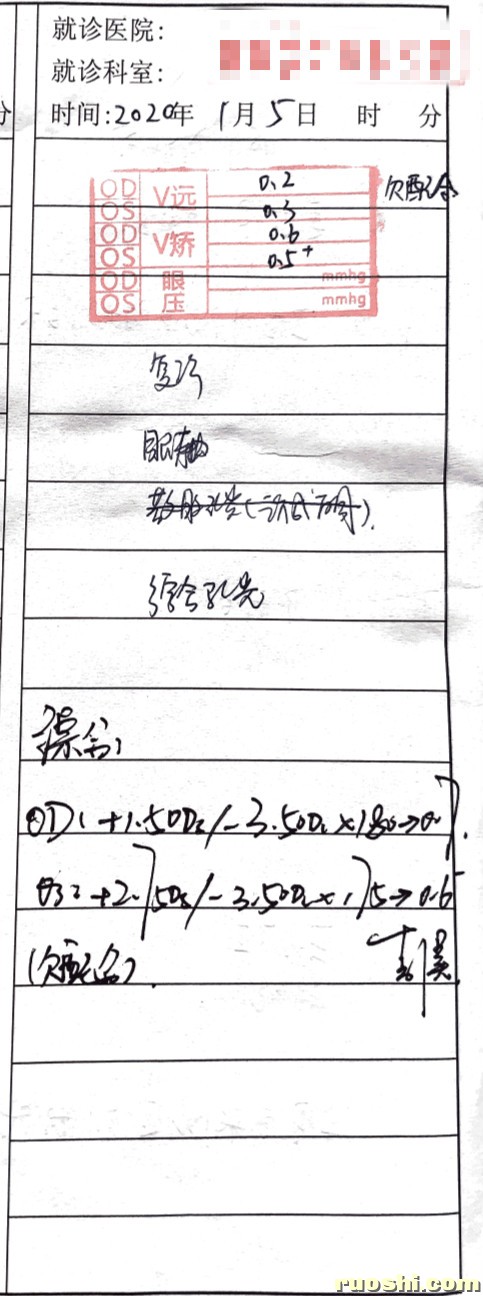 就诊医院:
就诊科室:
时间:2020年 1月5日 时 分
OD V远 0.2 欠配合
OS 0.3
OD V矫 0.6
OS 0.5+
OD 眼压 mmhg
OS mmhg
复诊
眼轴
综合验光
OD: +1.50Ds/-3.50Dc×180→0.7
OS: +2.75Ds/-3.50Dc×175→0.6
(欠配合)
ruoshi.com